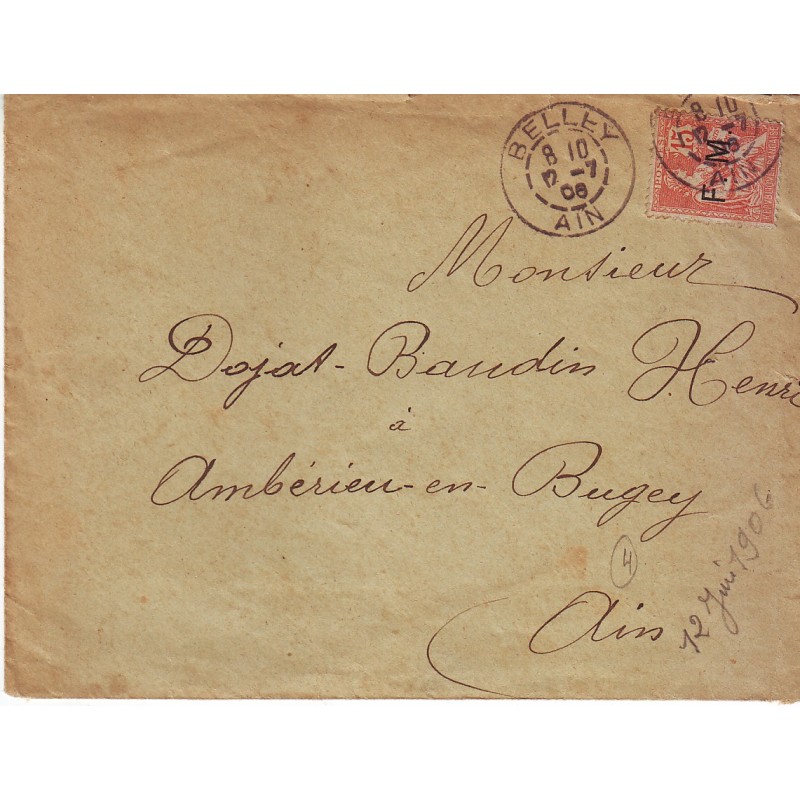 BELLEY
8 10
2 -7
06
AIN
15
F. M.
8 10
2 -7
AIN
Monsieur
Dojat-Baudin Henri
à
Ambérieu-en-Bugey
4
Ain
12 Juin 1906